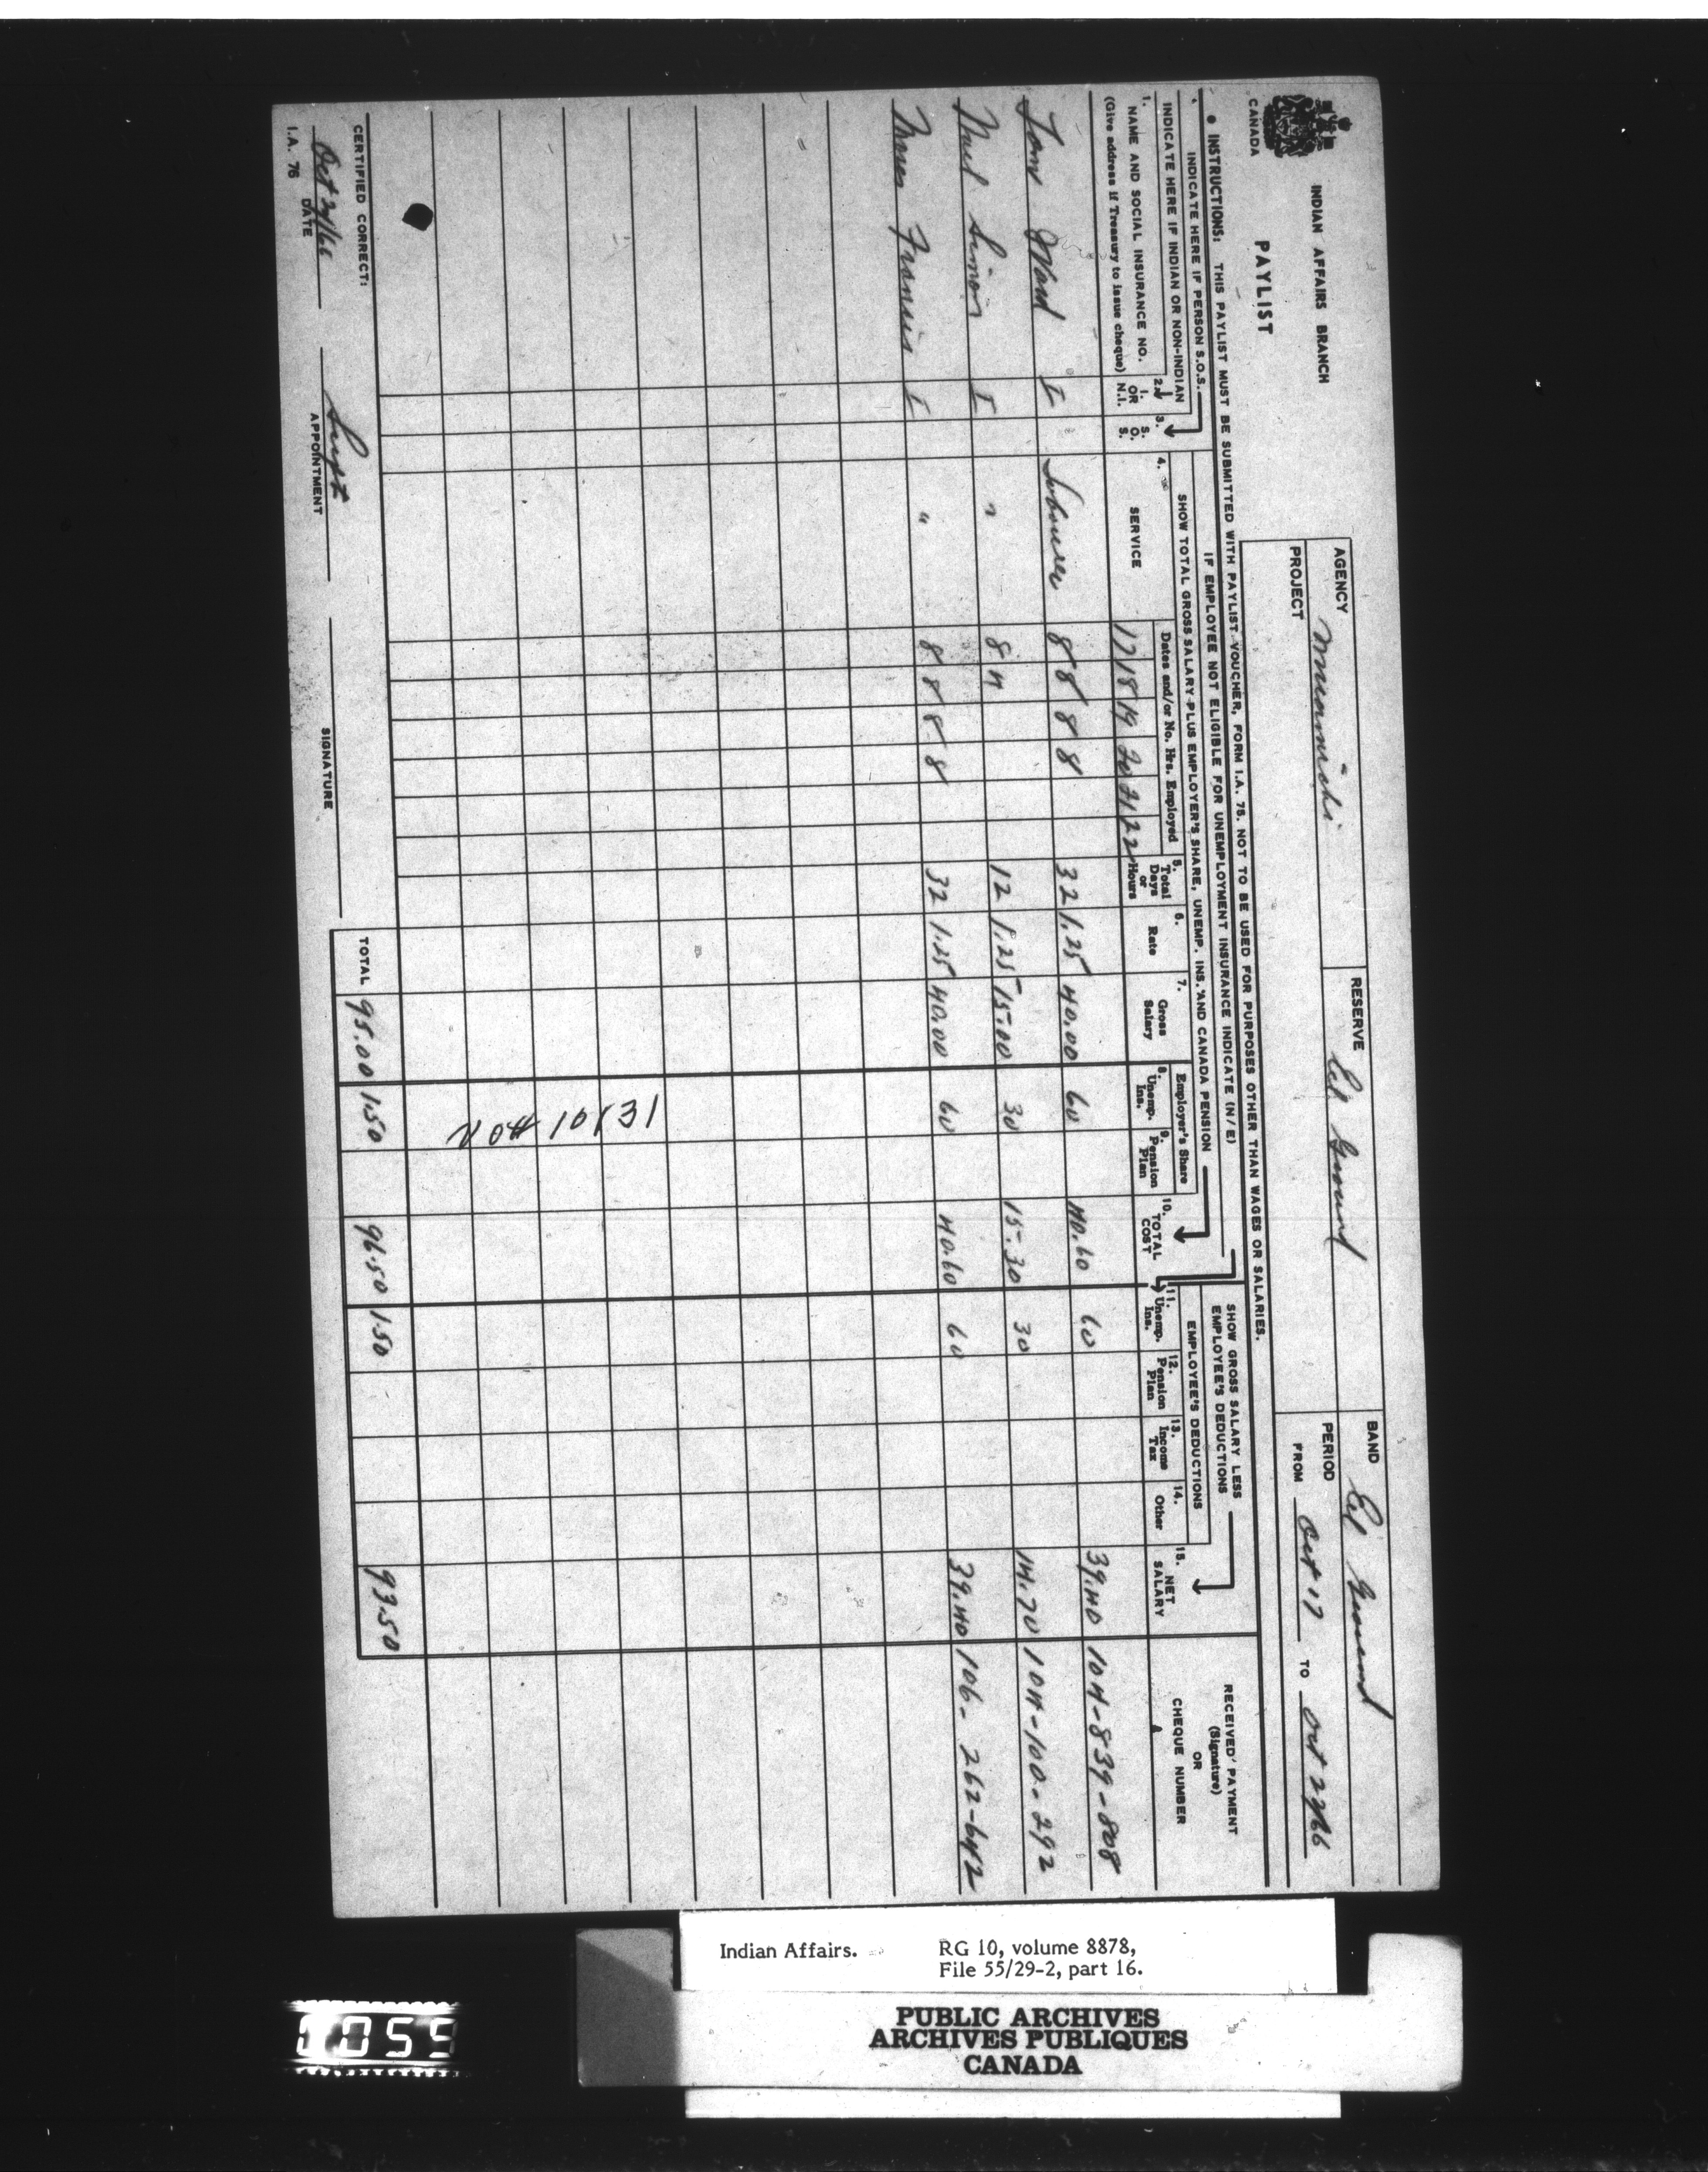 CANADA
INDIAN AFFAIRS BRANCH
PAYLIST
AGENCY Miramichi
RESERVE Eel Ground
BAND Eel Ground
PROJECT
PERIOD
FROM Oct 17 TO Oct 22/66
● INSTRUCTIONS: THIS PAYLIST MUST BE SUBMITTED WITH PAYLIST VOUCHER, FORM I.A. 75. NOT TO BE USED FOR PURPOSES OTHER THAN WAGES OR SALARIES.
INDICATE HERE IF PERSON S.O.S.
IF EMPLOYEE NOT ELIGIBLE FOR UNEMPLOYMENT INSURANCE INDICATE (N/E)
INDICATE HERE IF INDIAN OR NON-INDIAN
SHOW TOTAL GROSS SALARY PLUS EMPLOYER'S SHARE, UNEMP. INS. AND CANADA PENSION
SHOW GROSS SALARY LESS EMPLOYEE'S DEDUCTIONS
1. NAME AND SOCIAL INSURANCE NO. (Give address if Treasury to issue cheque)
2. I. OR N.I.
3. S. O. S.
4. SERVICE
Dates and/or No. Hrs. Employed
17 18 19 20 21 22
5. Total Days or Hours
6. Rate
7. Gross Salary
Employer's Share
8. Unemp. Ins.
9. Pension Plan
10. TOTAL COST
EMPLOYEE'S DEDUCTIONS
11. Unemp. Ins.
12. Pension Plan
13. Income Tax
14. Other
15. NET SALARY
RECEIVED PAYMENT (Signature) OR CHEQUE NUMBER
Tom Ward I Labourer 8 8 8 8 32 1.25 40.00 60 40.60 60 39.40 104-839-808
Noel Simon I " 8 4 12 1.25 15.00 30 15.30 30 14.70 104-100-292
Francis I " 8 8 8 8 32 1.25 40.00 60 40.60 60 39.40 106-262-642
TOTAL 95.00 1.50 96.50 1.50 93.50
CERTIFIED CORRECT:
Supt
DATE
APPOINTMENT
SIGNATURE
I.A. 76
Indian Affairs. RG 10, volume 8878,
File 55/29-2, part 16.
PUBLIC ARCHIVES
ARCHIVES PUBLIQUES
CANADA